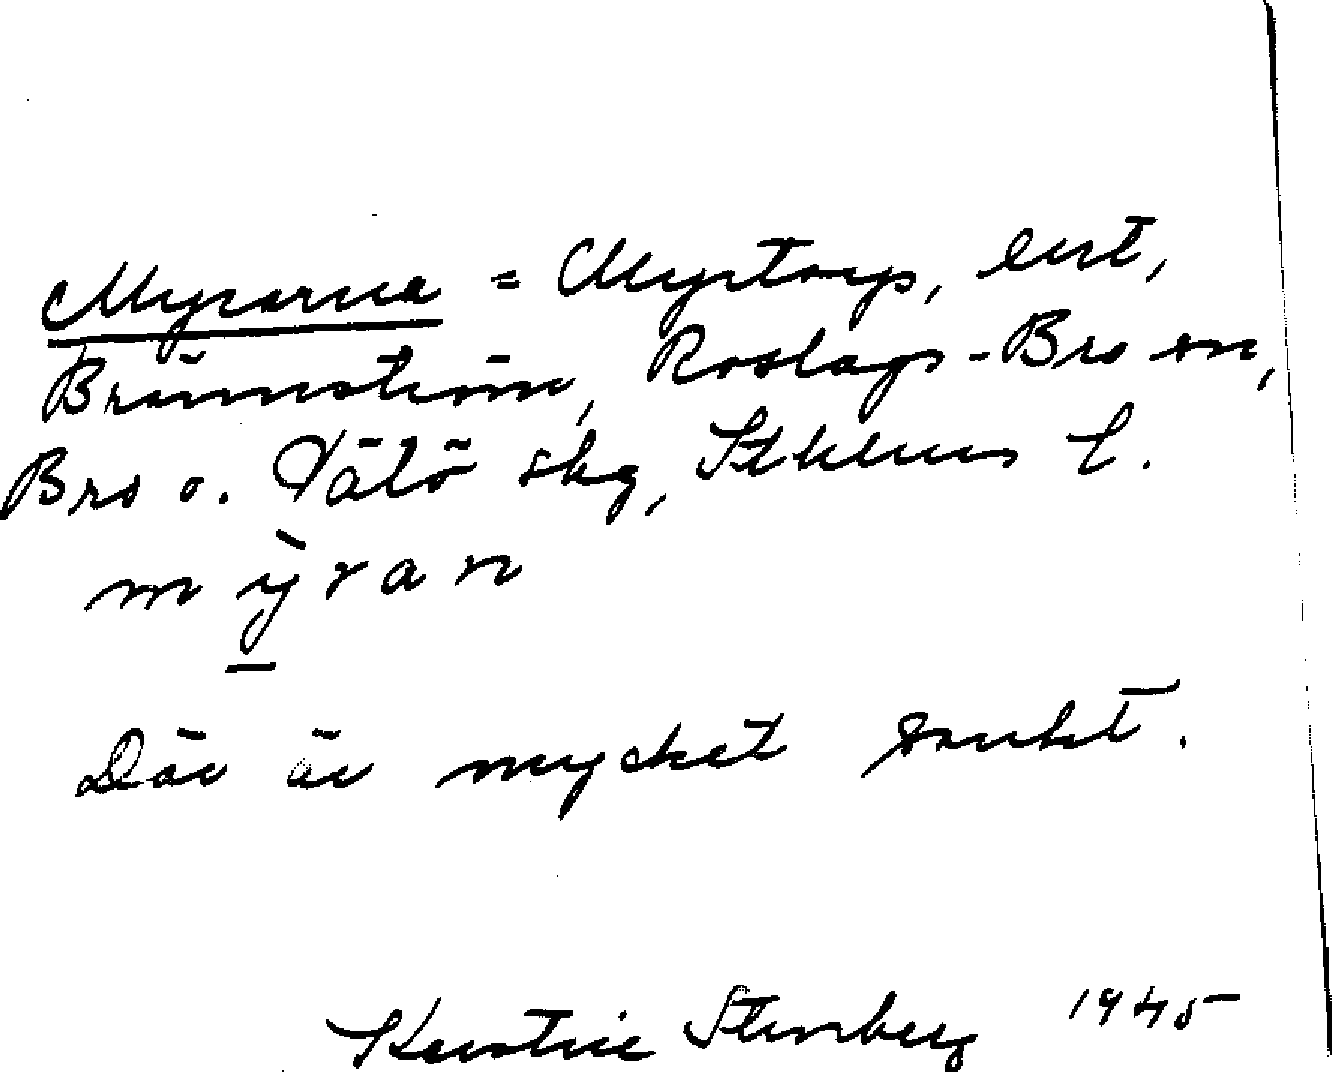 Myrarna = Myrtorp, ent,
Brännström, Roslags-Bro sn,
Bro o. Vätö skg, Sthlms l.
mỳran
Där är mycket sankt.
Kerstin Stenberg 1945